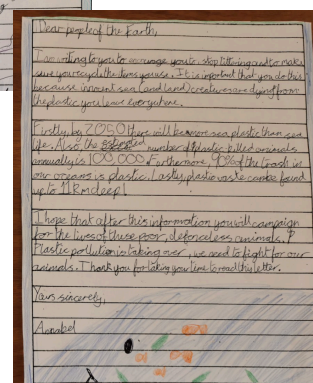 Dear people of the Earth,
I am writing to you to encourage you to stop littering and to make
sure you recycle the items you use. It is important that you do this
because innocent sea (and land) creatures are dying from
the plastic you leave everywhere.
Firstly, by 2050 there will be more sea plastic than sea
life. Also, the number of plastic killed animals
annually is 100,000. Furthermore, 90% of the trash in
our oceans is plastic. Lastly, plastic waste can be found
up to 11km deep!
I hope that after this information you will campaign
for the lives of these poor, defenceless animals.
Plastic pollution is taking over, we need to fight for our
animals. Thank you for taking your time to read this letter.
Yours sincerely,
Annabel